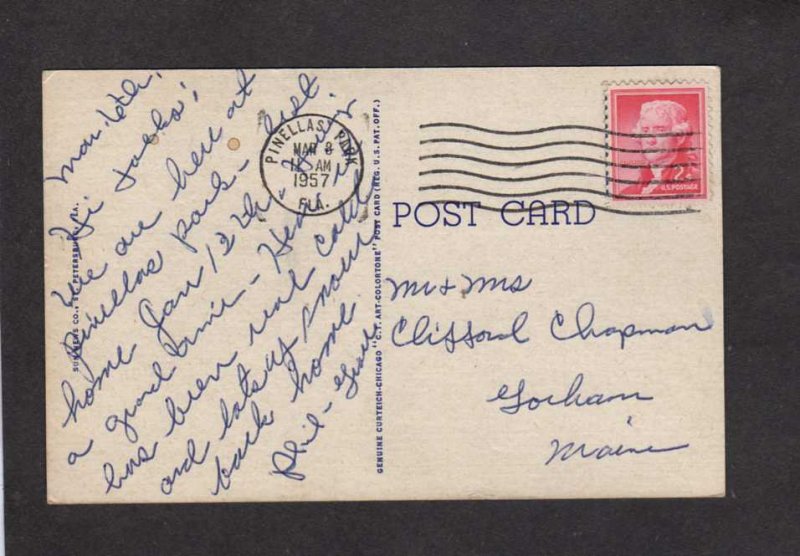 Mar 10th,
Hi folks;
We are here at
Pinellas Park - left
home Jan 12th. Having
a grand time - Hear it
has been real cold
and lots of snow
back home.
Phil -
PINELLAS PARK
MAR 8
AM
1957
FLA.
2¢
U.S. POSTAGE
POST CARD
Mr & Mrs
Clifford Chapman
Gorham
Maine
GENUINE CURTEICH-CHICAGO "C.T. ART-COLORTONE" POST CARD (REG. U.S. PAT. OFF.)
CO., ST. PETERSBURG,